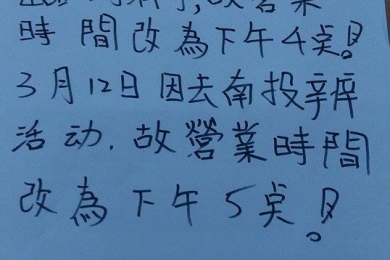 故營業
時間改為下午4点!
3月12日因去南投
活动.故營業時間
改為下午5点!